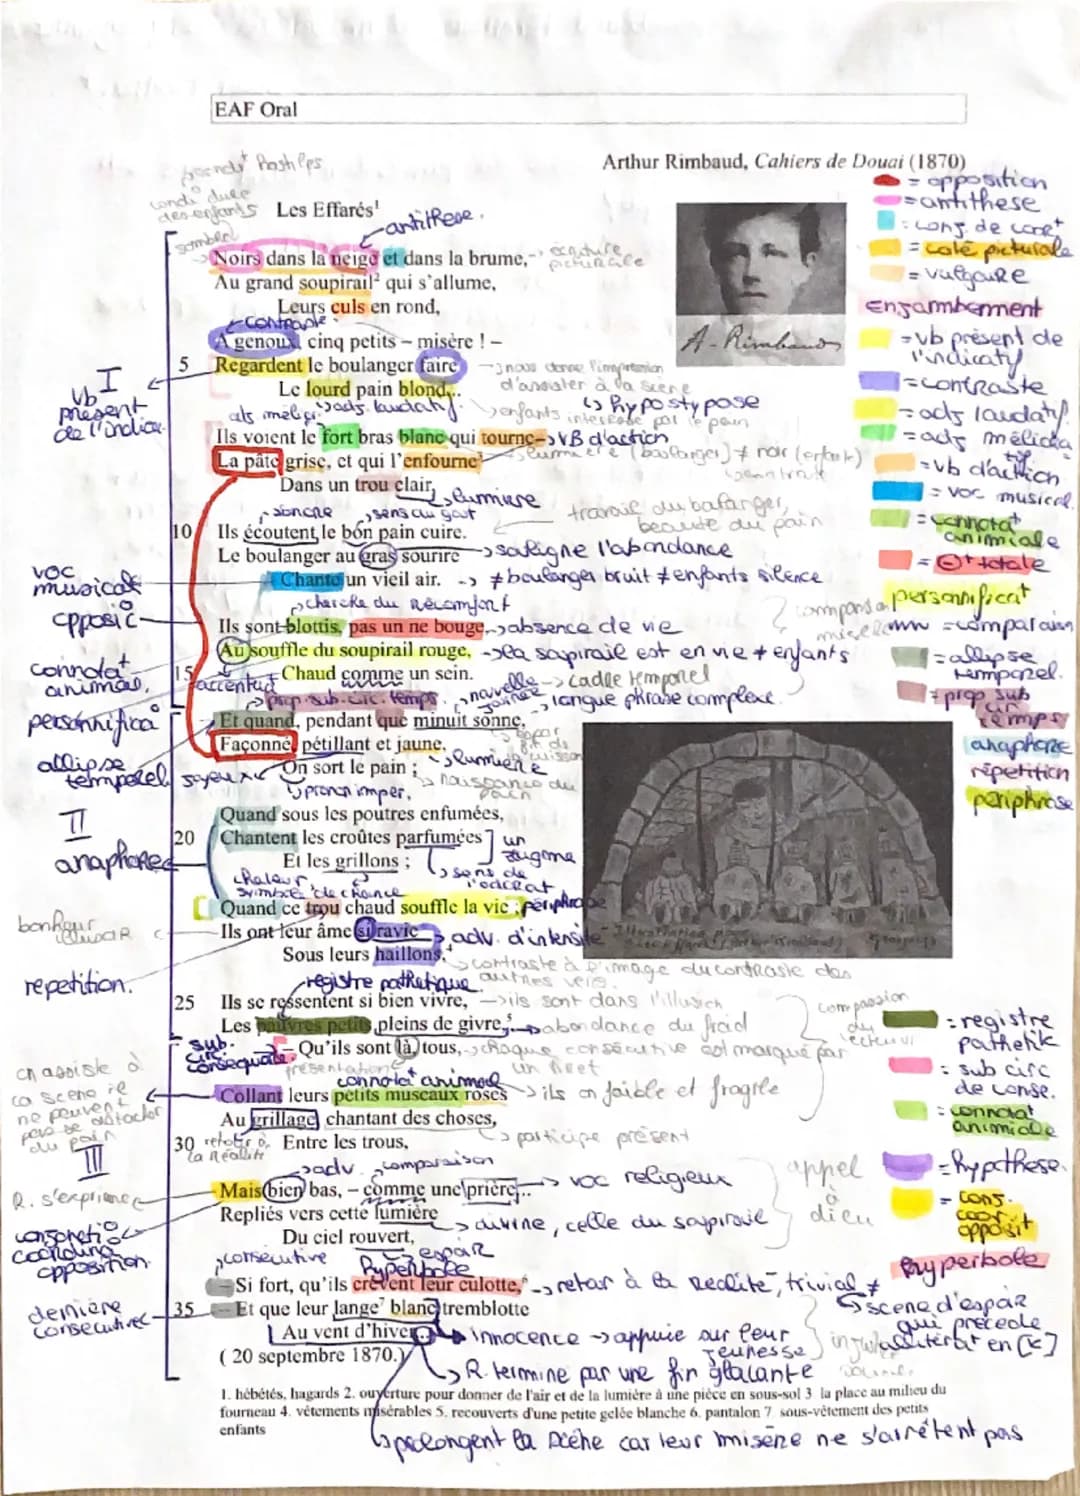 EAF Oral
Arthur Rimbaud, Cahiers de Douai (1870)
condi° dure
des enfants
Les Effarés¹
antithese.
sombre
Noirs dans la neige et dans la brume, -> écriture picturale
Au grand soupirail² qui s'allume,
Leurs culs en rond,
contraste
A genoux, cinq petits – misère ! –
5 Regardent le boulanger faire -> nous donne l'impression d'assister à la scène
Le lourd pain blond...
-> hypostypose
adj. laudatif.
enfants intéressé par le pain
Ils voient le fort bras blanc qui tourne -> VB d'action
La pâte grise, et qui l'enfourne
lumière (boulanger) ≠ noir (enfant)
Dans un trou clair. lumiere
sens du gout
travail du boulanger, beauté du pain
10 Ils écoutent le bon pain cuire.
Le boulanger au gras sourire -> souligne l'abondance
Chante un vieil air. -> ≠ boulanger bruit ≠ enfants silence
cherche du réconfort
Ils sont blottis, pas un ne bouge, -> absence de vie
Au souffle du soupirail rouge, -> la sapirail est en vie ≠ enfants
15 Chaud comme un sein. -> cadre temporel
prop. sub. circ. temps.
-> longue phrase complexe.
Et quand, pendant que minuit sonne,
Façonné, pétillant et jaune, lumière
On sort le pain ; naissance du pain
joyeux
pronom imper.
Quand sous les poutres enfumées,
20 Chantent les croûtes parfumées un zugma
Et les grillons ; sens de l'odorat
chaleur
symbole de chance
Quand ce trou chaud souffle la vie ; périphrase
Ils ont leur âme si ravie -> adv. d'intensité
Sous leurs haillons,⁴
contraste à l'image du contraste des autres vers.
registre pathetique
25 Ils se ressentent si bien vivre, -> ils sont dans l'illusion
Les pauvres petits pleins de givre,⁵ -> abondance du froid
– Qu'ils sont là, tous, -> chaque consécutive est marqué par un tiret
présentation
connotat° animal
Collant leurs petits museaux roses -> ils on faible et fragile
Au grillage, chantant des choses,
30 Entre les trous, -> participe présent
retour à la réalité
adv. comparaison
Mais bien bas, – comme une prière... -> voc religieux
Repliés vers cette lumière -> divine, celle du sapirail
Du ciel rouvert, espoir
consécutive
hyperbole
– Si fort, qu'ils crèvent leur culotte,⁶ -> retour à la réalité, trivial ≠
scene d'espoir qui précede
35 – Et que leur lange⁷ blanc tremblotte
Au vent d'hiver... innocence -> appuie sur leur jeunesse
( 20 septembre 1870.) -> R. termine par une fin glaçante
1. hébétés, hagards 2. ouverture pour donner de l'air et de la lumière à une pièce en sous-sol 3 la place au milieu du
fourneau 4. vêtements misérables 5. recouverts d'une petite gelée blanche 6. pantalon 7. sous-vêtement des petits
enfants
-> prolongent la scène car leur misère ne s'arrêtent pas
I
vb présent de l'indica
voc musicale
opposi°
connotat° animal.
personnifica°
allipse temporel
II
anaphore
bonheur illusoir
repetition.
sub. circ consequence
on assiste à la scene il ne peuvent pas se détacher du pain
III
R. s'exprime
conjonctio° coordina° opposition.
dernière consecutive
A. Rimbaud
= opposition
= antithese
= conj. de coor°
= coté picturale
= vulgaire
Enjambement
= vb présent de l'indicatif
= contraste
= adj laudatif.
= adj mélioratif
= vb d'action
= voc musical
= connotat° animale
= ⊖° totale
personnificat°
= comparaison
= allipse temporel.
= prop sub cir temps
anaphore
répetition
périphrase
compassion du lecteur
= registre pathétik
= sub circ de conse.
= connotat° animale
= hypothese.
= conj. coor opposit°
hyperbole
appel à dieu
allitérat° en [k]